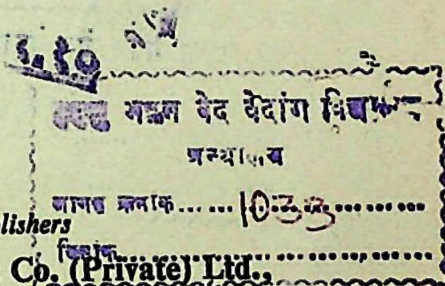 भवन वेद वेदांग विद्यालय
ग्रन्थालय
आगत क्रमांक...... 1033 ..........
lishers
दिनांक..............................
Co. (Private) Ltd.,